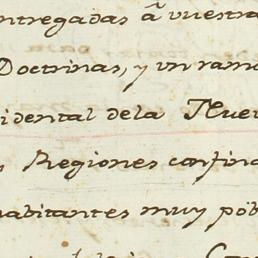 ntregadas â vuestra
Doctrinas, y un ramo
idental dela Nue
Regiones confina
habitantes muy pòb